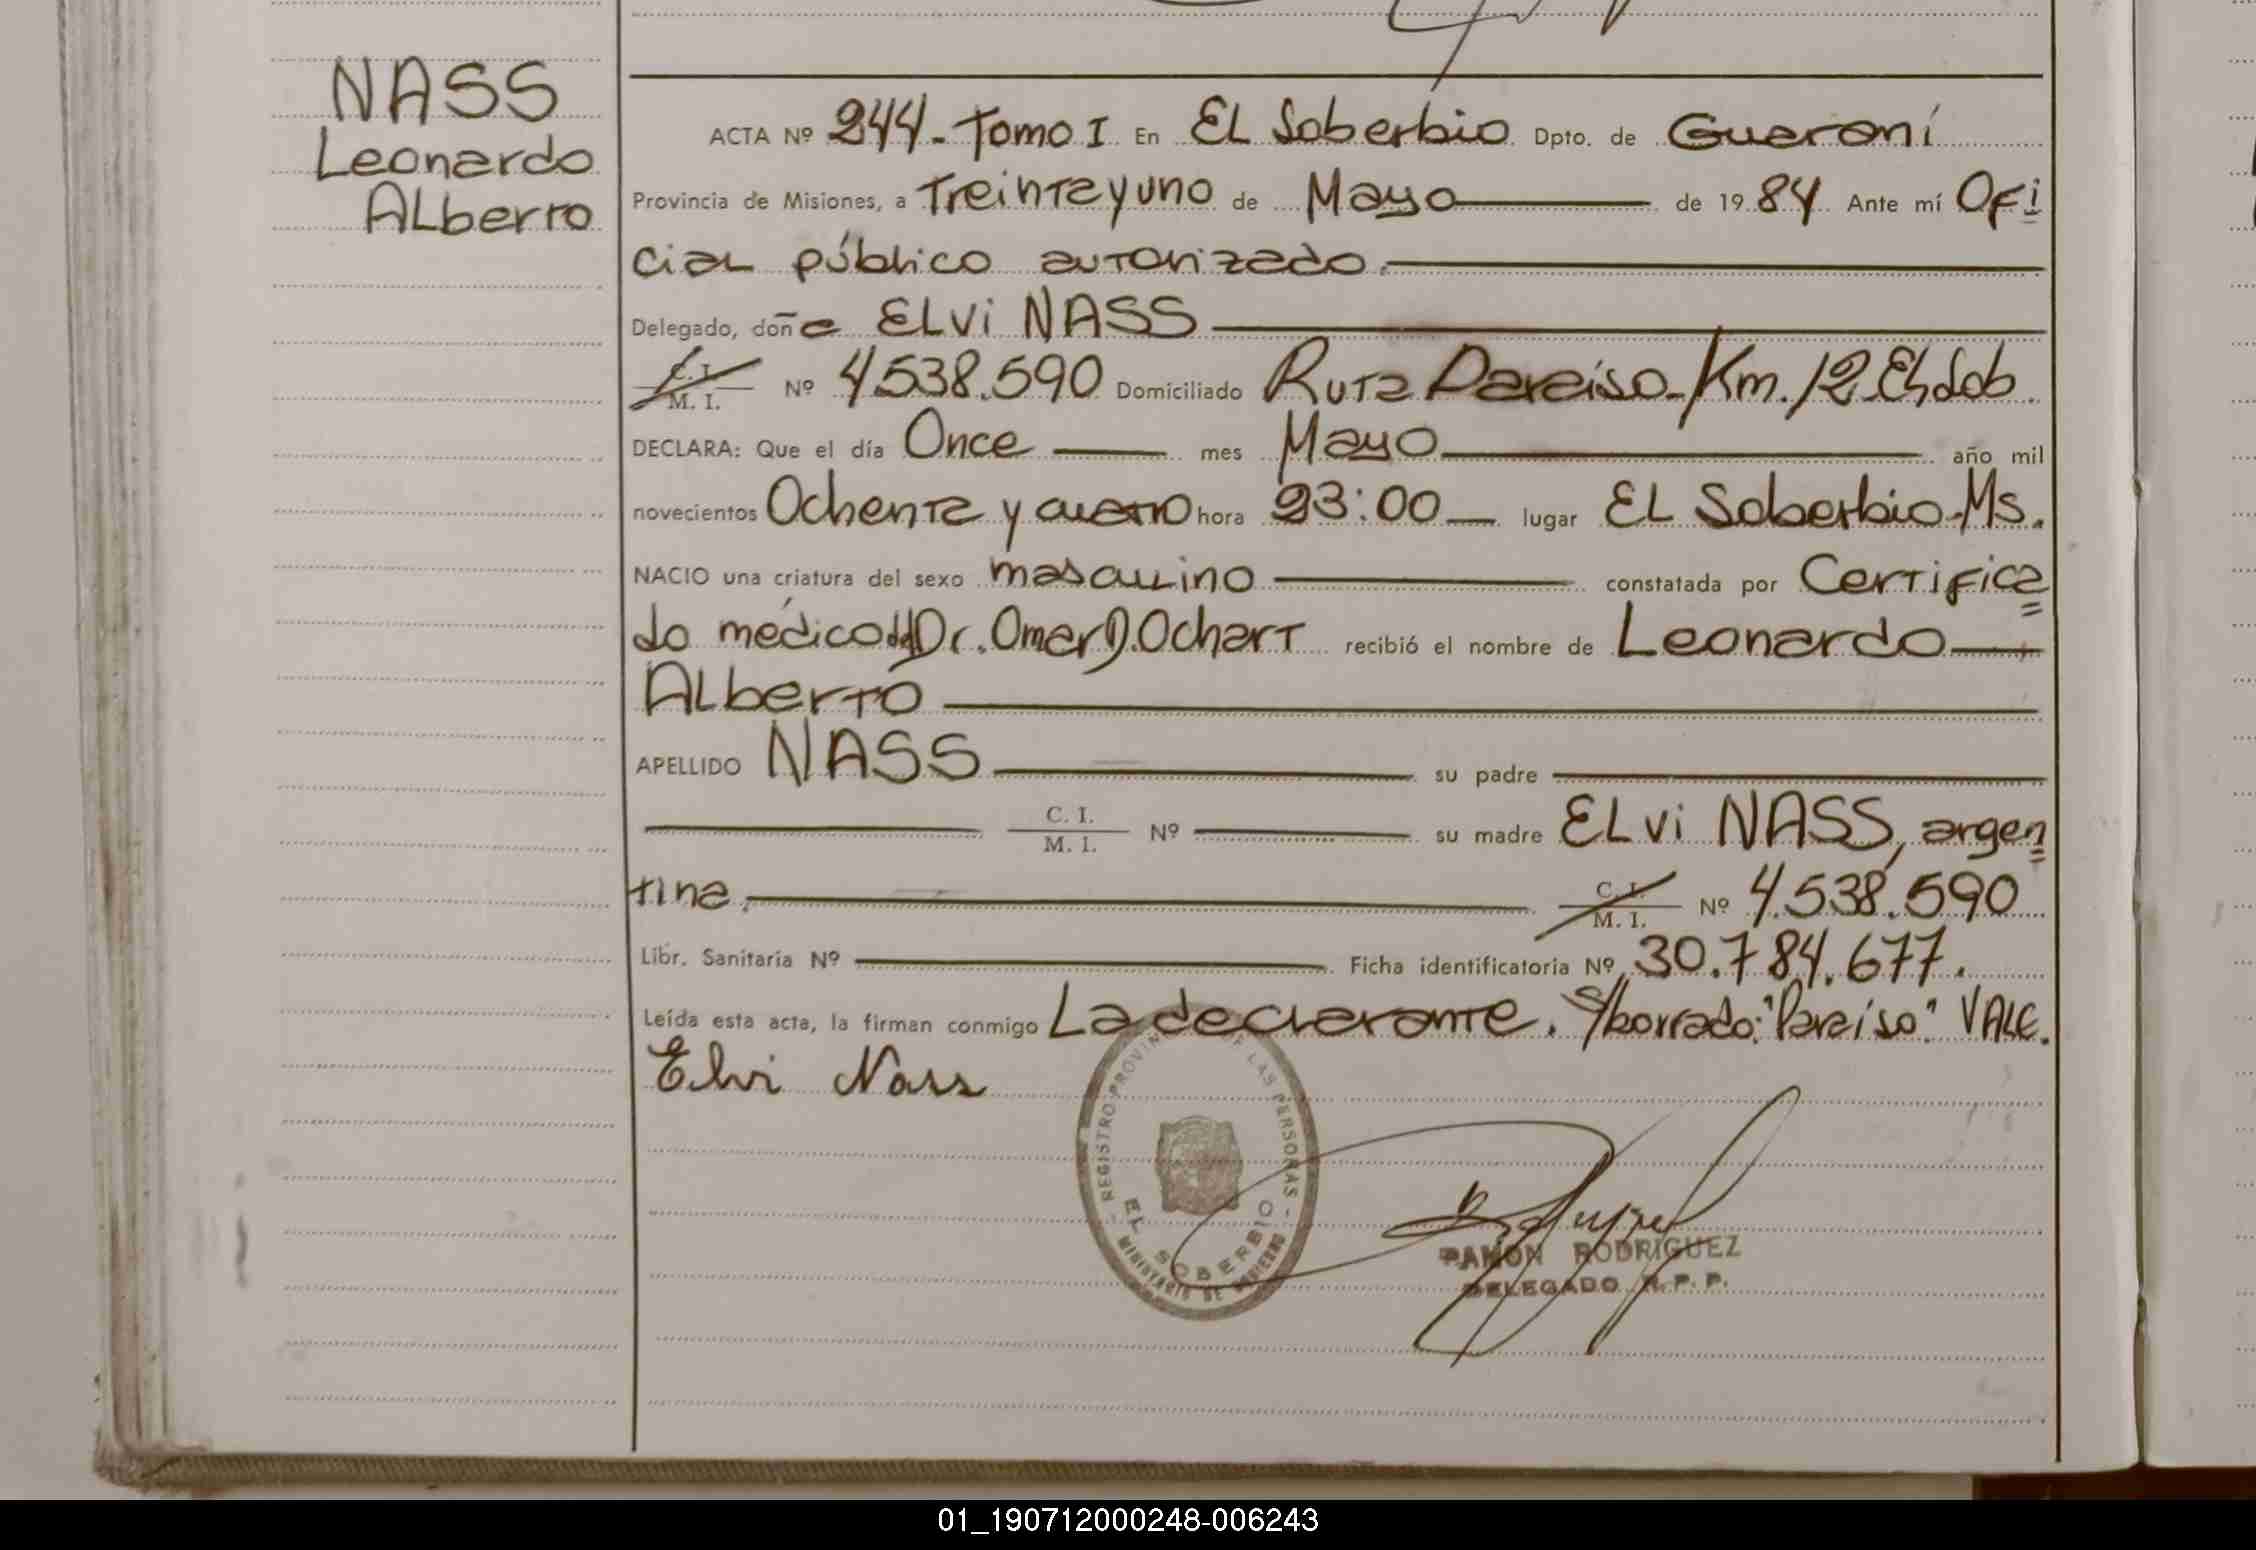 NASS
Leonardo
ALberto
ACTA Nº 244 - Tomo I En EL Soberbio Dpto. de Guaraní
Provincia de Misiones, a Treinta y uno de Mayo de 1984 Ante mí Ofi
cial público autorizado.
Delegado, doña ELvi NASS
C. I. M. I. Nº 4.538.590 Domiciliado Ruta Paraíso - Km. 12 El Sob.
DECLARA: Que el día Once mes Mayo año mil
novecientos Ochenta y cuatro hora 23:00 lugar EL Soberbio - Ms.
NACIO una criatura del sexo masculino constatada por Certifica
do médico del Dr. Omar D. Ochart recibió el nombre de Leonardo
ALberto
APELLIDO NASS su padre
C. I. M. I. Nº su madre ELvi NASS, argen
tina. C. I. M. I. Nº 4.538.590
Libr. Sanitaria Nº Ficha identificatoria Nº 30.784.677.
Leída esta acta, la firman conmigo La declarante. S/borrado: "Paraíso" VALE.
Elvi Nass
REGISTRO PROVINCIAL DE LAS PERSONAS
EL SOBERBIO
MINISTERIO DE GOBIERNO
RAMON RODRIGUEZ
DELEGADO R. P. P.
01_190712000248-006243